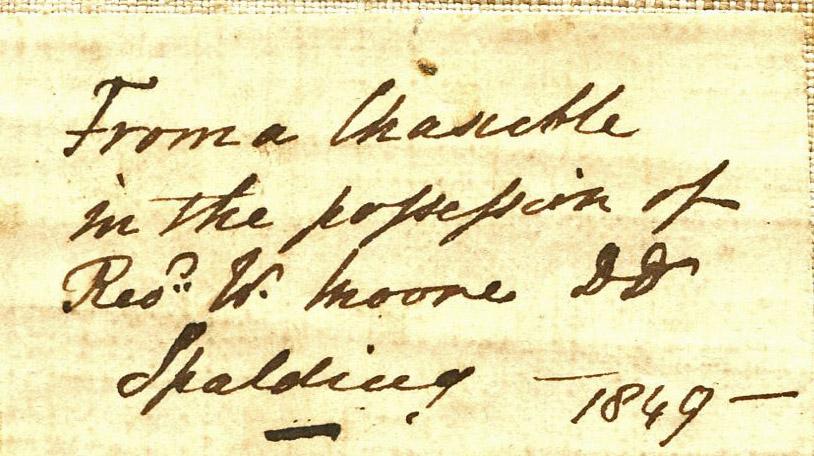 From a Chasuble
in the possession of
Revd. W. Moore DD
Spalding — 1849 —